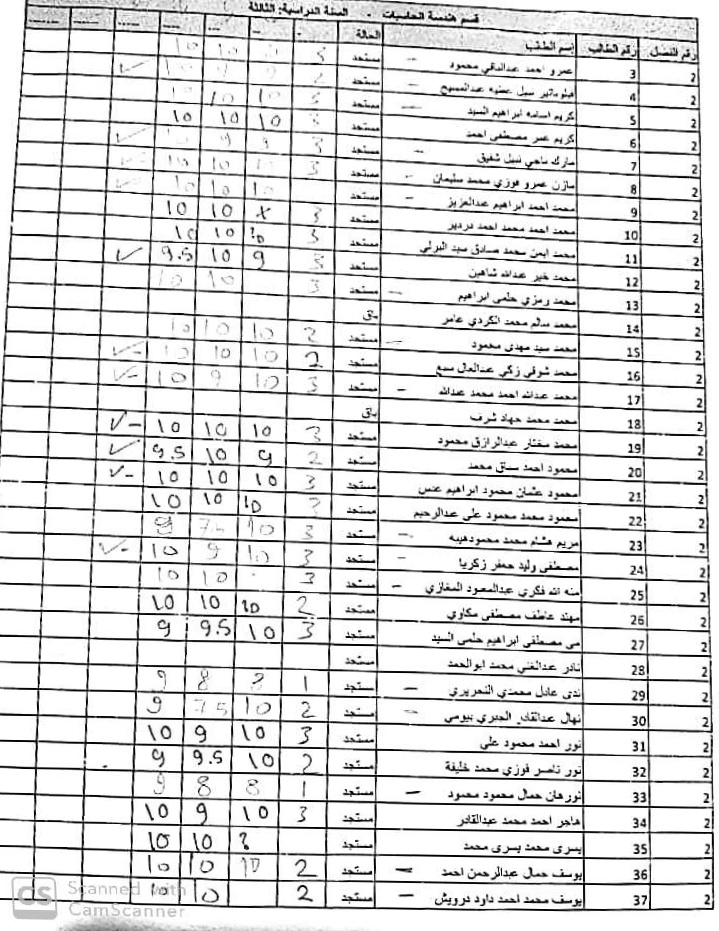 قسم هندسة الحاسبات - السنة الدراسية: الثالثة
رقم الفصل رقم الطالب إسم الطالب الحالة
2 3 عمرو احمد عبدالباقي محمود مستجد 3 10 10
2 4 فيلوباتير نبيل عطيه عبدالمسيح مستجد 2 9 9 10
2 5 كريم اسامه ابراهيم السيد مستجد 3 10 10
2 6 كريم عمر مصطفى احمد مستجد 10 10 10
2 7 مارك ناجي نبيل شفيق مستجد 3 9 9
2 8 مازن عمرو فوزي محمد سليمان مستجد 3 10 10 10
2 9 محمد احمد ابراهيم عبدالعزيز مستجد 10 10 10
2 10 محمد احمد محمد احمد دردير مستجد 3 x 10 10
2 11 محمد ايمن محمد صادق سيد البرلي مستجد 3 10 10 10
2 12 محمد خير عبدالله شاهين مستجد 3 9 10 9.5
2 13 محمد رمزي حلمى ابراهيم مستجد 3 10 10
2 14 محمد سالم محمد الكردي عامر باق
2 15 محمد سيد مهدى محمود مستجد 2 10 10 10
2 16 محمد شوقى زكي عبدالعال سبع مستجد 2 10 10 10
2 17 محمد عبدالله احمد محمد عبدالله مستجد 3 10 9 10
2 18 محمد محمد جهاد شرف باق
2 19 محمد مختار عبدالرازق محمود مستجد 3 10 10 10
2 20 محمود احمد محمد مستجد 2 9 10 9.5
2 21 محمود عثمان محمود ابراهيم مستجد 3 10 10 10
2 22 محمود محمد محمود على عبدالرحيم مستجد 10 10 10
2 23 مريم هشام محمد محمودهيبه مستجد 3 10 9
2 24 مصطفى وليد جعفر زكريا مستجد 3 10 9 10
2 25 منه الله فكري عبدالمعبود المغازي مستجد 3 10 10
2 26 مهند عاطف مصطفى مكاوي مستجد 2 10 10 10
2 27 مى مصطفى ابراهيم حلمى السيد مستجد 3 10 9.5 9
2 28 نادر عبدالغني محمد ابوالحمد مستجد
2 29 ندى عادل محمدي النحريري مستجد 1 8 8 9
2 30 نهال عبدالقادر بيومي مستجد 2 10 7.5 9
2 31 نور احمد محمود على مستجد 3 10 9 10
2 32 نور ناصر فوزي محمد خليفة مستجد 2 10 9.5 9
2 33 نورهان جمال محمود محمود مستجد 1 8 8 9
2 34 هاجر احمد محمد عبدالقادر مستجد 3 10 9 10
2 35 يسرى محمد يسرى محمد مستجد ? 10 10
2 36 يوسف جمال عبدالرحمن احمد مستجد 2 10 10 10
2 37 يوسف محمد احمد داود درويش مستجد 2 10 10
CS Scanned with
CamScanner